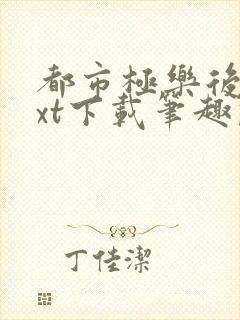 都市極樂後
xt下載筆趣
丁佳潔